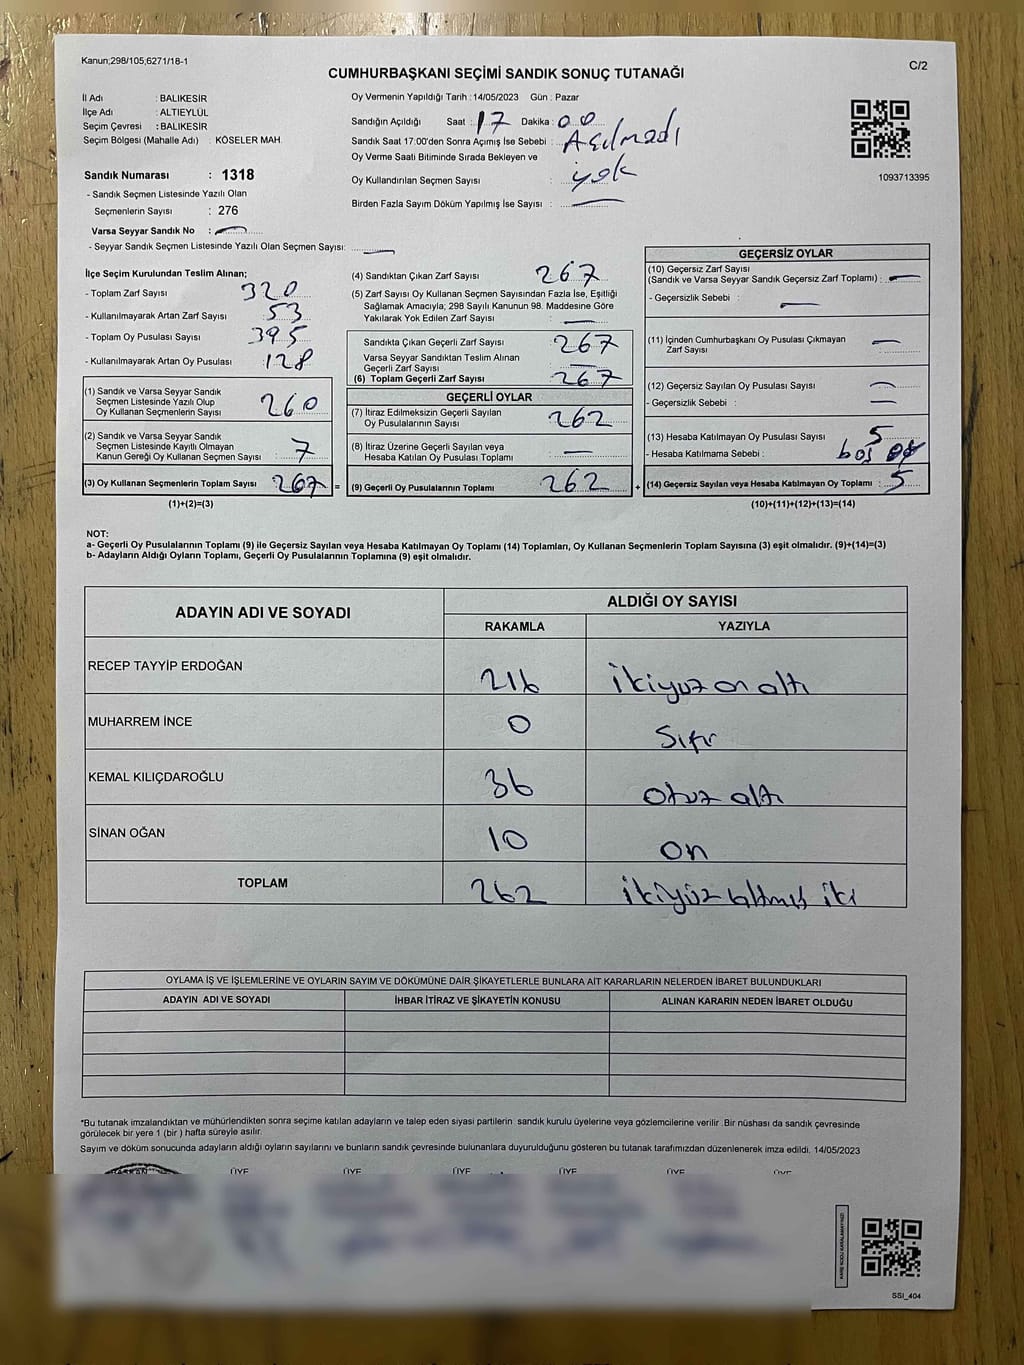 Kanun;298/105;6271/18-1
C/2
CUMHURBAŞKANI SEÇİMİ SANDIK SONUÇ TUTANAĞI
İl Adı : BALIKESİR
İlçe Adı : ALTIEYLÜL
Seçim Çevresi : BALIKESİR
Seçim Bölgesi (Mahalle Adı) : KÖSELER MAH.
Sandık Numarası : 1318
- Sandık Seçmen Listesinde Yazılı Olan
Seçmenlerin Sayısı : 276
Varsa Seyyar Sandık No : —
- Seyyar Sandık Seçmen Listesinde Yazılı Olan Seçmen Sayısı: —
Oy Vermenin Yapıldığı Tarih : 14/05/2023 Gün : Pazar
Sandığın Açıldığı Saat : 17 Dakika : 00
Sandık Saat 17:00'den Sonra Açımış İse Sebebi : Açılmadı
Oy Verme Saati Bitiminde Sırada Bekleyen ve
Oy Kullandırılan Seçmen Sayısı : yok
Birden Fazla Sayım Döküm Yapılmış İse Sayısı : —
1093713395
İlçe Seçim Kurulundan Teslim Alınan;
- Toplam Zarf Sayısı : 320
- Kullanılmayarak Artan Zarf Sayısı : 53
- Toplam Oy Pusulası Sayısı : 395
- Kullanılmayarak Artan Oy Pusulası : 128
(1) Sandık ve Varsa Seyyar Sandık
Seçmen Listesinde Yazılı Olup
Oy Kullanan Seçmenlerin Sayısı : 260
(2) Sandık ve Varsa Seyyar Sandık
Seçmen Listesinde Kayıtlı Olmayan
Kanun Gereği Oy Kullanan Seçmen Sayısı : 7
(3) Oy Kullanan Seçmenlerin Toplam Sayısı : 267 =
(1)+(2)=(3)
(4) Sandıktan Çıkan Zarf Sayısı : 267
(5) Zarf Sayısı Oy Kullanan Seçmen Sayısından Fazla İse, Eşitliği
Sağlamak Amacıyla; 298 Sayılı Kanunun 98. Maddesine Göre
Yakılarak Yok Edilen Zarf Sayısı : —
Sandıkta Çıkan Geçerli Zarf Sayısı : 267
Varsa Seyyar Sandıktan Teslim Alınan
Geçerli Zarf Sayısı : —
(6) Toplam Geçerli Zarf Sayısı : 267
GEÇERLİ OYLAR
(7) İtiraz Edilmeksizin Geçerli Sayılan
Oy Pusulalarının Sayısı : 262
(8) İtiraz Üzerine Geçerli Sayılan veya
Hesaba Katılan Oy Pusulası Toplamı : —
(9) Geçerli Oy Pusulalarının Toplamı : 262 +
GEÇERSİZ OYLAR
(10) Geçersiz Zarf Sayısı
(Sandık ve Varsa Seyyar Sandık Geçersiz Zarf Toplamı) : —
- Geçersizlik Sebebi : —
(11) İçinden Cumhurbaşkanı Oy Pusulası Çıkmayan
Zarf Sayısı : —
(12) Geçersiz Sayılan Oy Pusulası Sayısı : —
- Geçersizlik Sebebi : —
(13) Hesaba Katılmayan Oy Pusulası Sayısı : 5
- Hesaba Katılmama Sebebi : boş
(14) Geçersiz Sayılan veya Hesaba Katılmayan Oy Toplamı : 5
(10)+(11)+(12)+(13)=(14)
NOT:
a- Geçerli Oy Pusulalarının Toplamı (9) ile Geçersiz Sayılan veya Hesaba Katılmayan Oy Toplamı (14) Toplamları, Oy Kullanan Seçmenlerin Toplam Sayısına (3) eşit olmalıdır. (9)+(14)=(3)
b- Adayların Aldığı Oyların Toplamı, Geçerli Oy Pusulalarının Toplamına (9) eşit olmalıdır.
ADAYIN ADI VE SOYADI
ALDIĞI OY SAYISI
RAKAMLA YAZIYLA
RECEP TAYYİP ERDOĞAN 216 ikiyüz on altı
MUHARREM İNCE 0 Sıfır
KEMAL KILIÇDAROĞLU 36 otuz altı
SİNAN OĞAN 10 on
TOPLAM 262 ikiyüz altmış iki
OYLAMA İŞ VE İŞLEMLERİNE VE OYLARIN SAYIM VE DÖKÜMÜNE DAİR ŞİKAYETLERLE BUNLARA AİT KARARLARIN NELERDEN İBARET BULUNDUKLARI
ADAYIN ADI VE SOYADI İHBAR İTİRAZ VE ŞİKAYETİN KONUSU ALINAN KARARIN NEDEN İBARET OLDUĞU
*Bu tutanak imzalandıktan ve mühürlendikten sonra seçime katılan adayların ve talep eden siyasi partilerin sandık kurulu üyelerine veya gözlemcilerine verilir. Bir nüshası da sandık çevresinde
görülecek bir yere 1 (bir ) hafta süreyle asılır.
Sayım ve döküm sonucunda adayların aldığı oyların sayılarını ve bunların sandık çevresinde bulunanlara duyurulduğunu gösteren bu tutanak tarafımızdan düzenlenerek imza edildi. 14/05/2023
BAŞKAN ÜYE ÜYE ÜYE ÜYE ÜYE ÜYE
KARE KODU KARALAMAYINIZ!
SSI_404